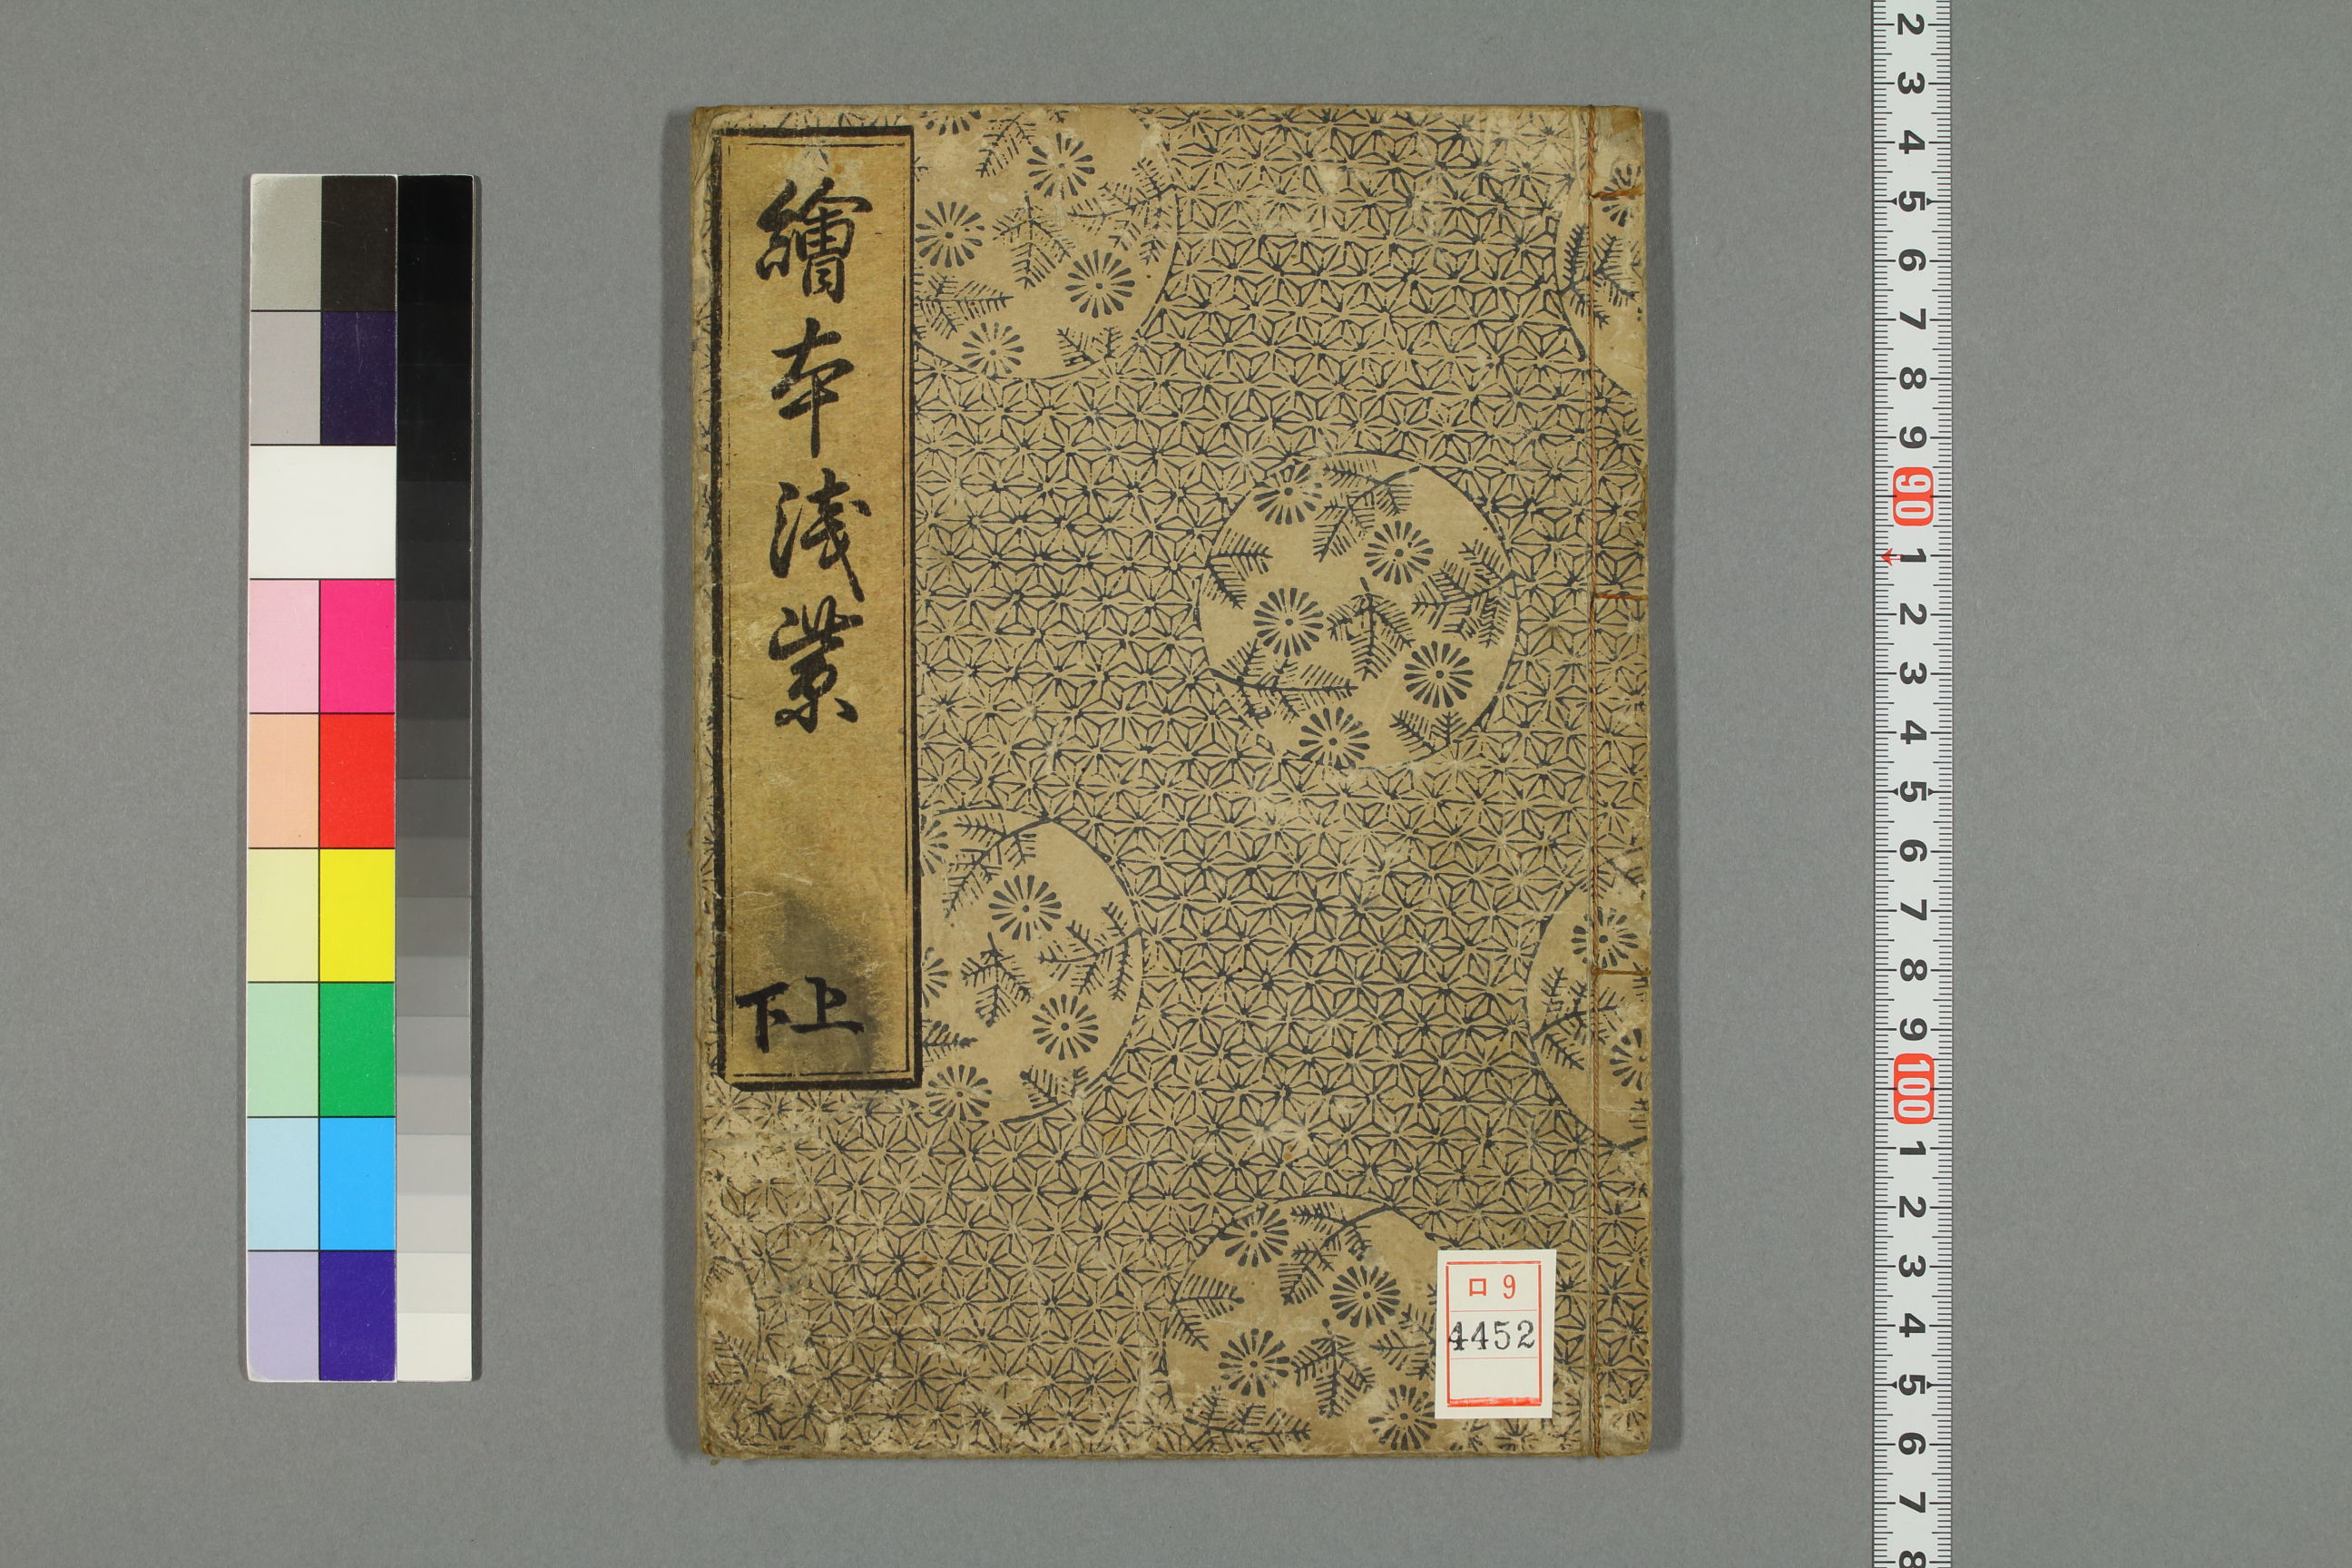 繪本浅紫
上
下
ロ 9
4452
2
3
4
5
6
7
8
9
90
1
2
3
4
5
6
7
8
9
100
1
2
3
4
5
6
7
8